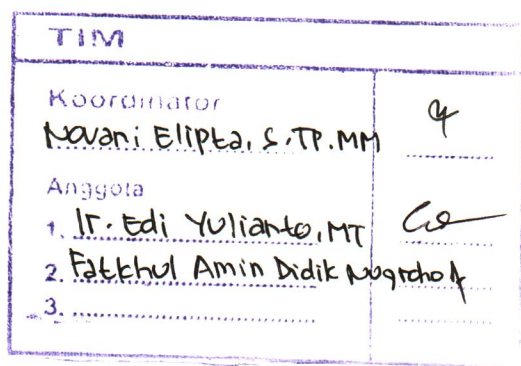 TIM
Koordinator
Novani Elipta, S.TP.MM
Anggota
1. Ir. Edi Yulianto, MT
2. Fatkhul Amin Didik Nugroho A
3.